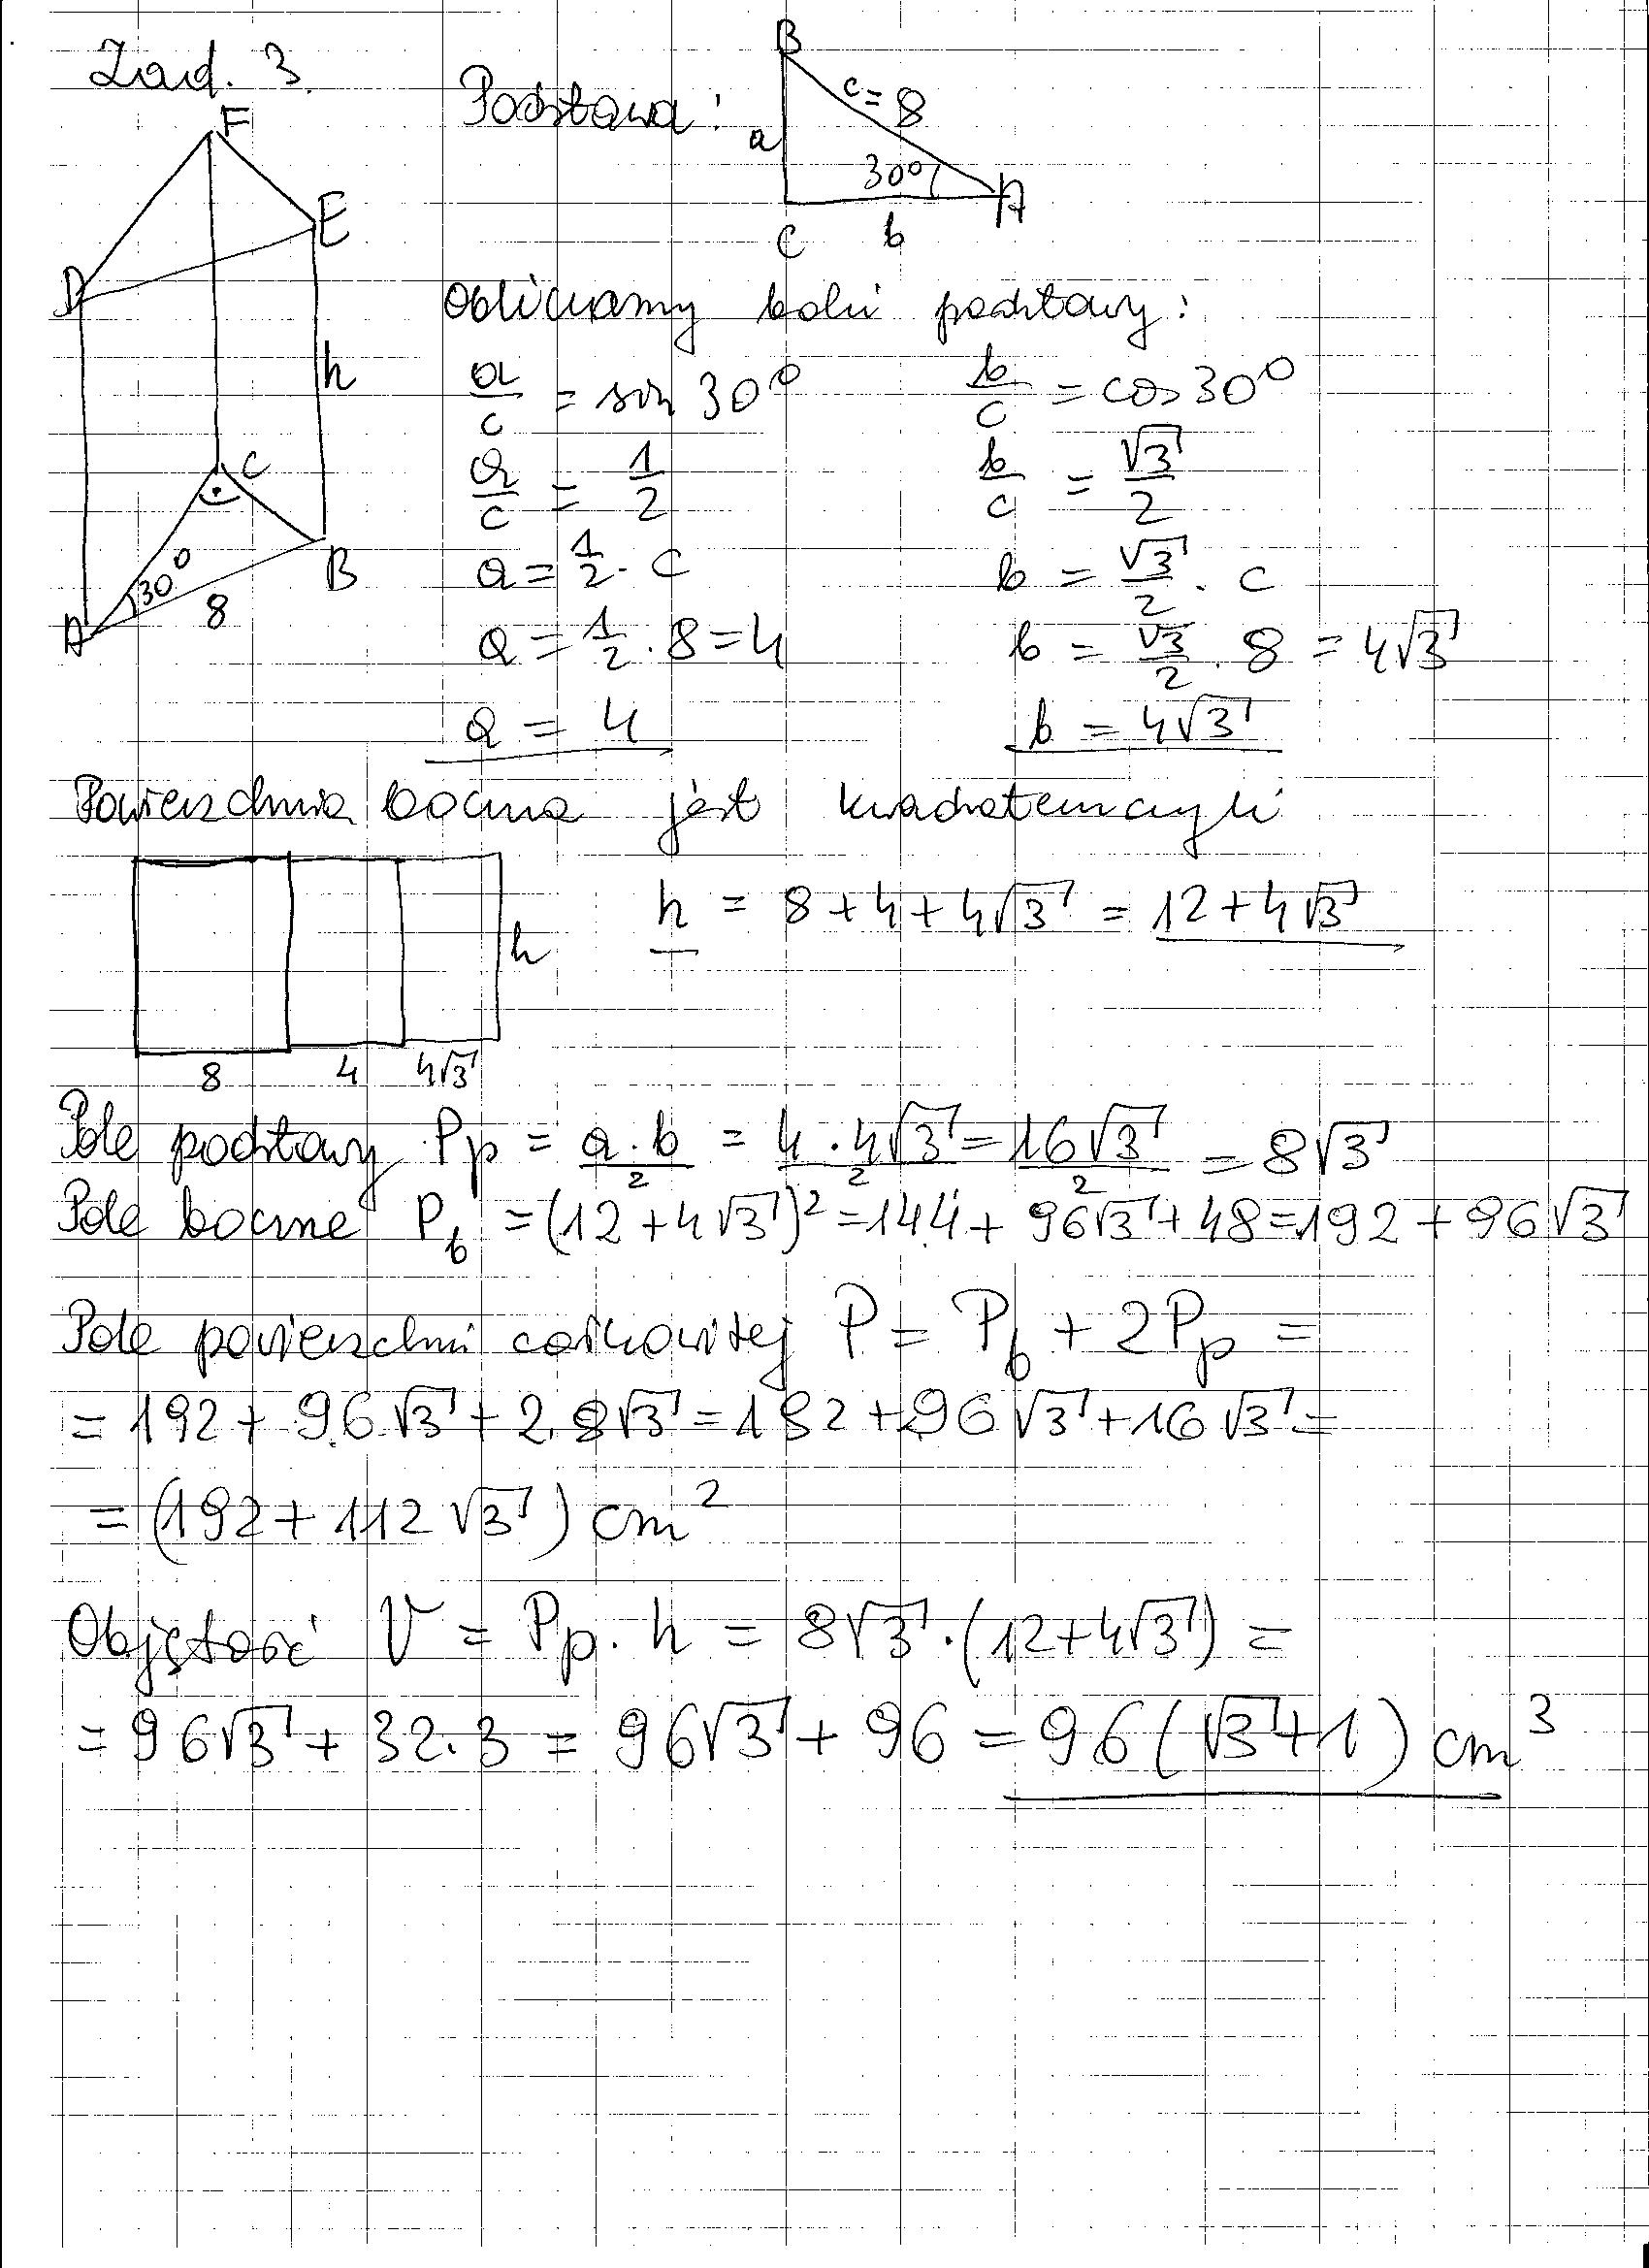 Zad. 3.
Podstawa:
B
c = 8
a
30°
A
C
b
F
E
D
h
C
30°
B
8
A
Obliczamy boki podstawy:
a/c = sin 30°
b/c = cos 30°
a/c = 1/2
b/c = √3/2
a = 1/2 · c
b = √3/2 · c
a = 1/2 · 8 = 4
b = √3/2 · 8 = 4√3
a = 4
b = 4√3
Powierzchnia boczna jest kwadratem czyli
h = 8 + 4 + 4√3 = 12 + 4√3
h
8 4 4√3
Pole podstawy Pp = a·b/2 = 4·4√3/2 = 16√3/2 = 8√3
Pole boczne Pb = (12 + 4√3)² = 144 + 96√3 + 48 = 192 + 96√3
Pole powierzchni całkowitej P = Pb + 2Pp =
= 192 + 96√3 + 2·8√3 = 192 + 96√3 + 16√3 =
= (192 + 112√3) cm²
Objętość V = Pp · h = 8√3 · (12 + 4√3) =
= 96√3 + 32·3 = 96√3 + 96 = 96(√3 + 1) cm³